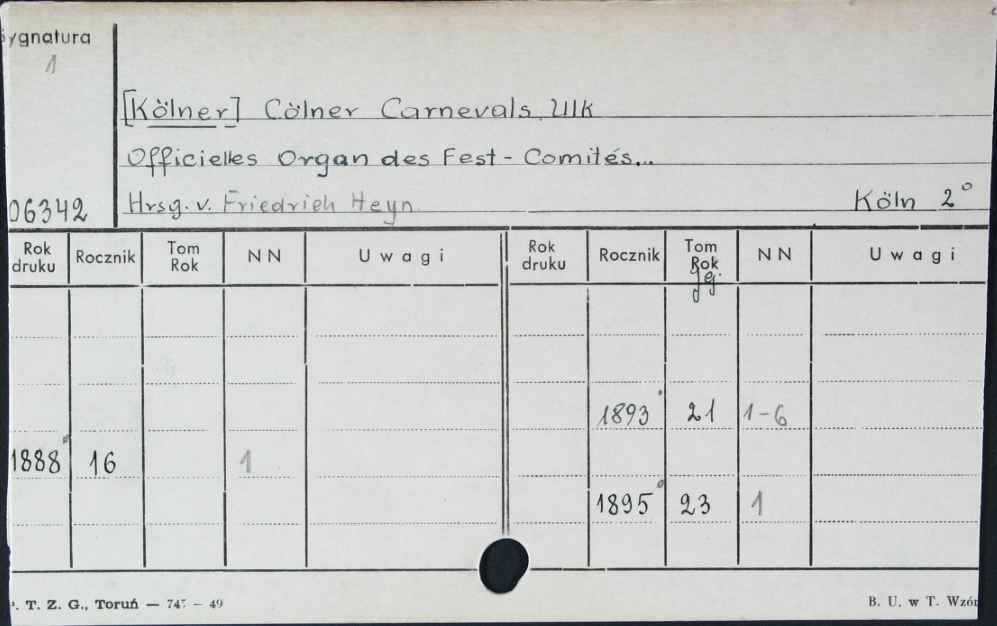 Sygnatura
1
[Kölner] Cölner Carnevals Ulk
Officielles Organ des Fest-Comités...
06342 Hrsg. v. Friedrich Heyn Köln 2°
Rok druku Rocznik Tom Rok NN Uwagi Rok druku Rocznik Tom Rok NN Uwagi
1893 21 1-6
1888 16 1
1895 23 1
. T. Z. G., Toruń — 747 – 49 B. U. w T. Wzór